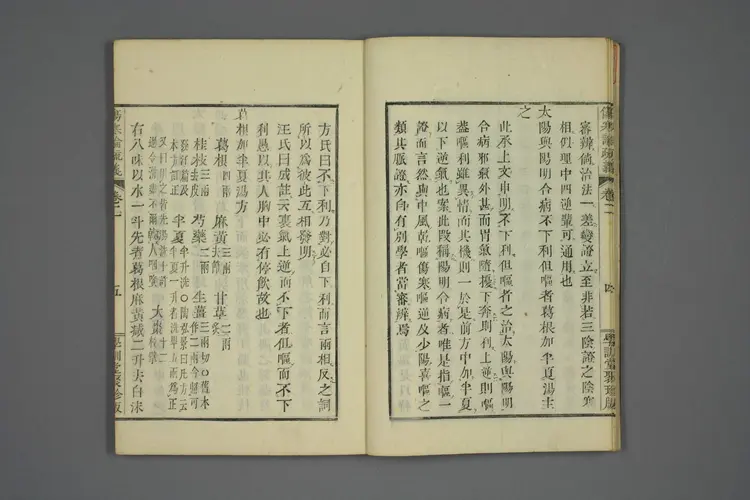 傷寒論疏義 卷二 四 學訓堂聚珍版
審辨倘治法一差變證立至非若三陰證之陰寒
相似理中四逆輩可通用也
太陽與陽明合病不下利但嘔者葛根加半夏湯主
之
此承上文申明不下利但嘔者之治太陽與陽明
合病邪氣外甚而胃氣隨擾下奔則利上逆則嘔
蓋嘔利雖異情而其機則一於是前方中加半夏
以下逆氣也案此段稱陽明合病者唯是指嘔一
證而言然與中風乾嘔傷寒嘔逆及少陽喜嘔之
類其脈證亦自有別學者當審辨焉
方氏曰不下利乃對必自下利而言兩相反之詞
所以爲彼此互相發明
汪氏曰成註云裏氣上逆而不下者但嘔而不下
利愚以其人胸中必有停飲故也
葛根加半夏湯方
葛根四兩 麻黃三兩去節 甘草二兩炙
桂枝三兩去皮 芍藥二兩 生薑三兩切○舊本作二兩今據可發汗篇及本方訂正
半夏半升洗○陶弘景曰凡方云半夏一升者洗畢秤五兩爲正
大棗十二枚擘
右八味以水一斗先煮葛根麻黃減二升去白沫
傷寒論疏義 卷二 五 學訓堂聚珍版